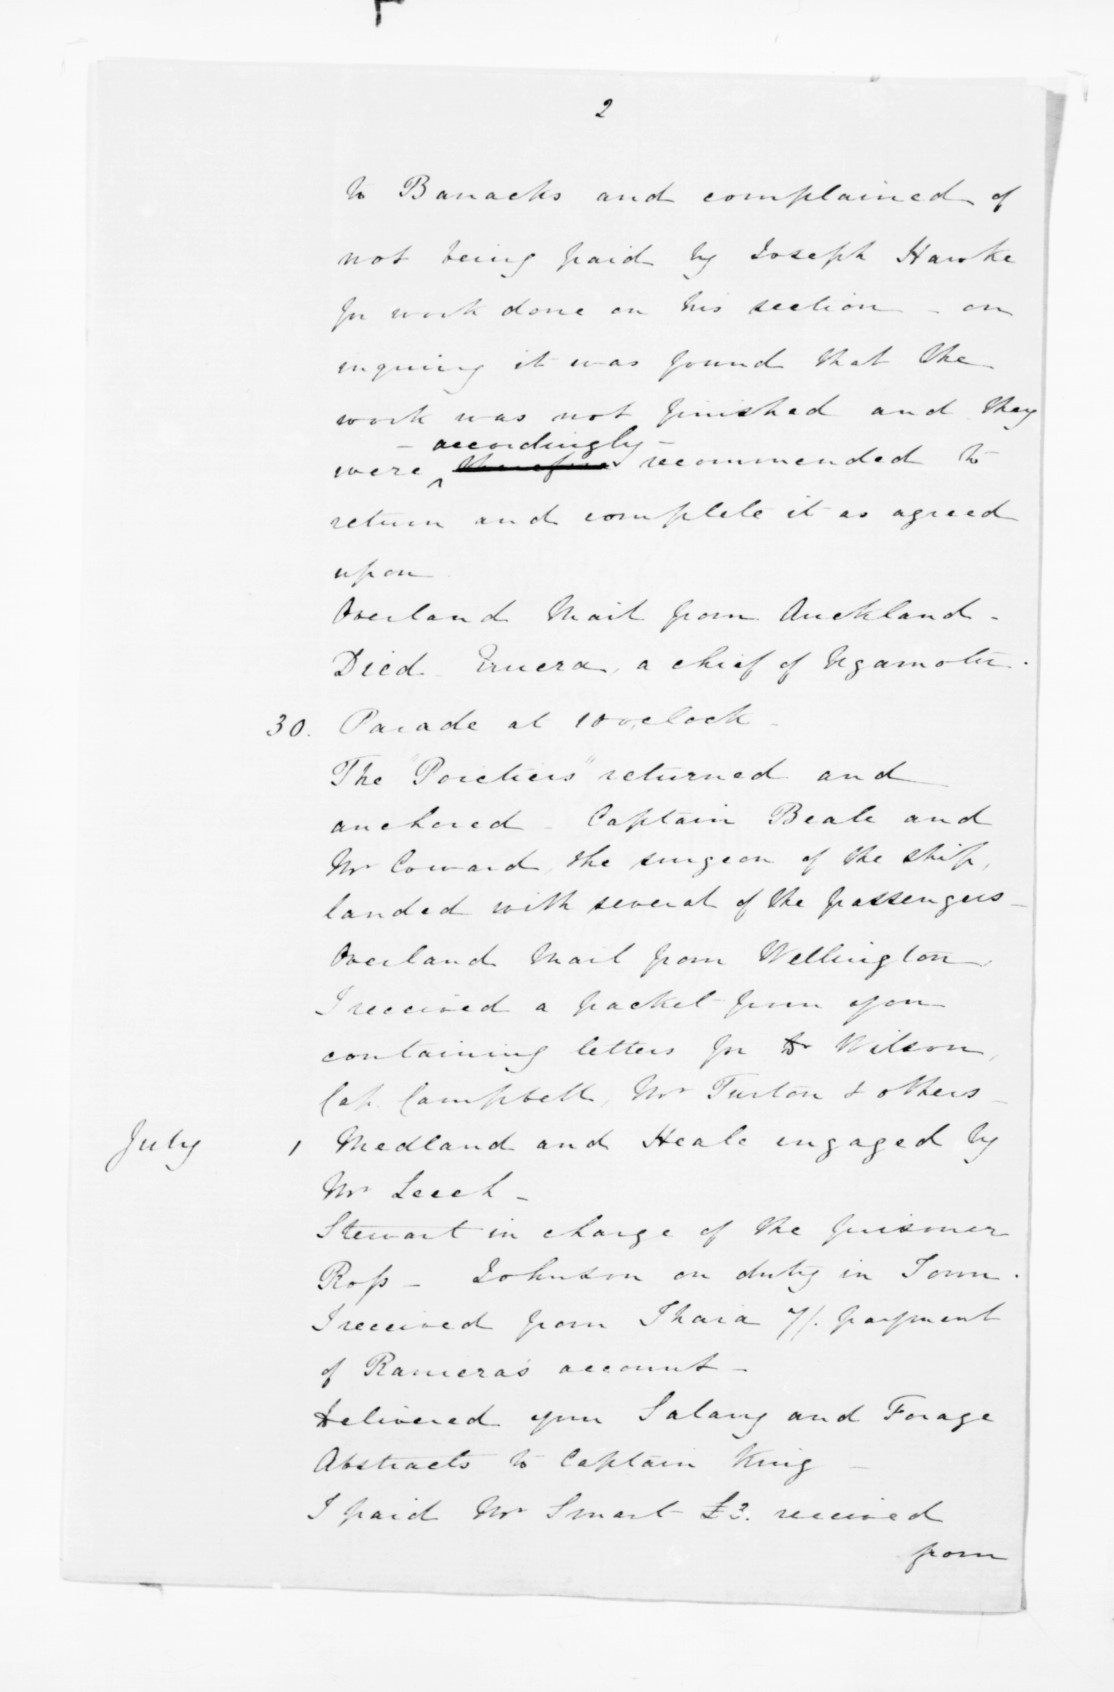 2
to Barracks and complained of
not being paid by Joseph Hawke
for work done on his section - on
inquiry it was found that the
work was not finished and they
- accordingly -
were ^ therefore recommended to
return and complete it as agreed
upon
Overland Mail from Auckland -
Died Eruera, a chief of Ngamotu.
30. Parade at 10 o,clock -
The "Poictiers" returned and
anchored - Captain Beale and
Mr Coward, the surgeon of the ship,
landed with several of the passengers -
Overland Mail from Wellington.
I received a packet from you
containing letters for Dr Wilson,
Cap. Campbell, Mr Turton & others -
July 1 Medland and Heale engaged by
Mr Leech -
Stewart in charge of the prisoner
Ross - Johnson on duty in Town.
I received from Ihaia 7/. payment
of Raniera's account -
Delivered your Salary and Forage
Abstracts to Captain King -
I paid Mr Smart £3. received
from